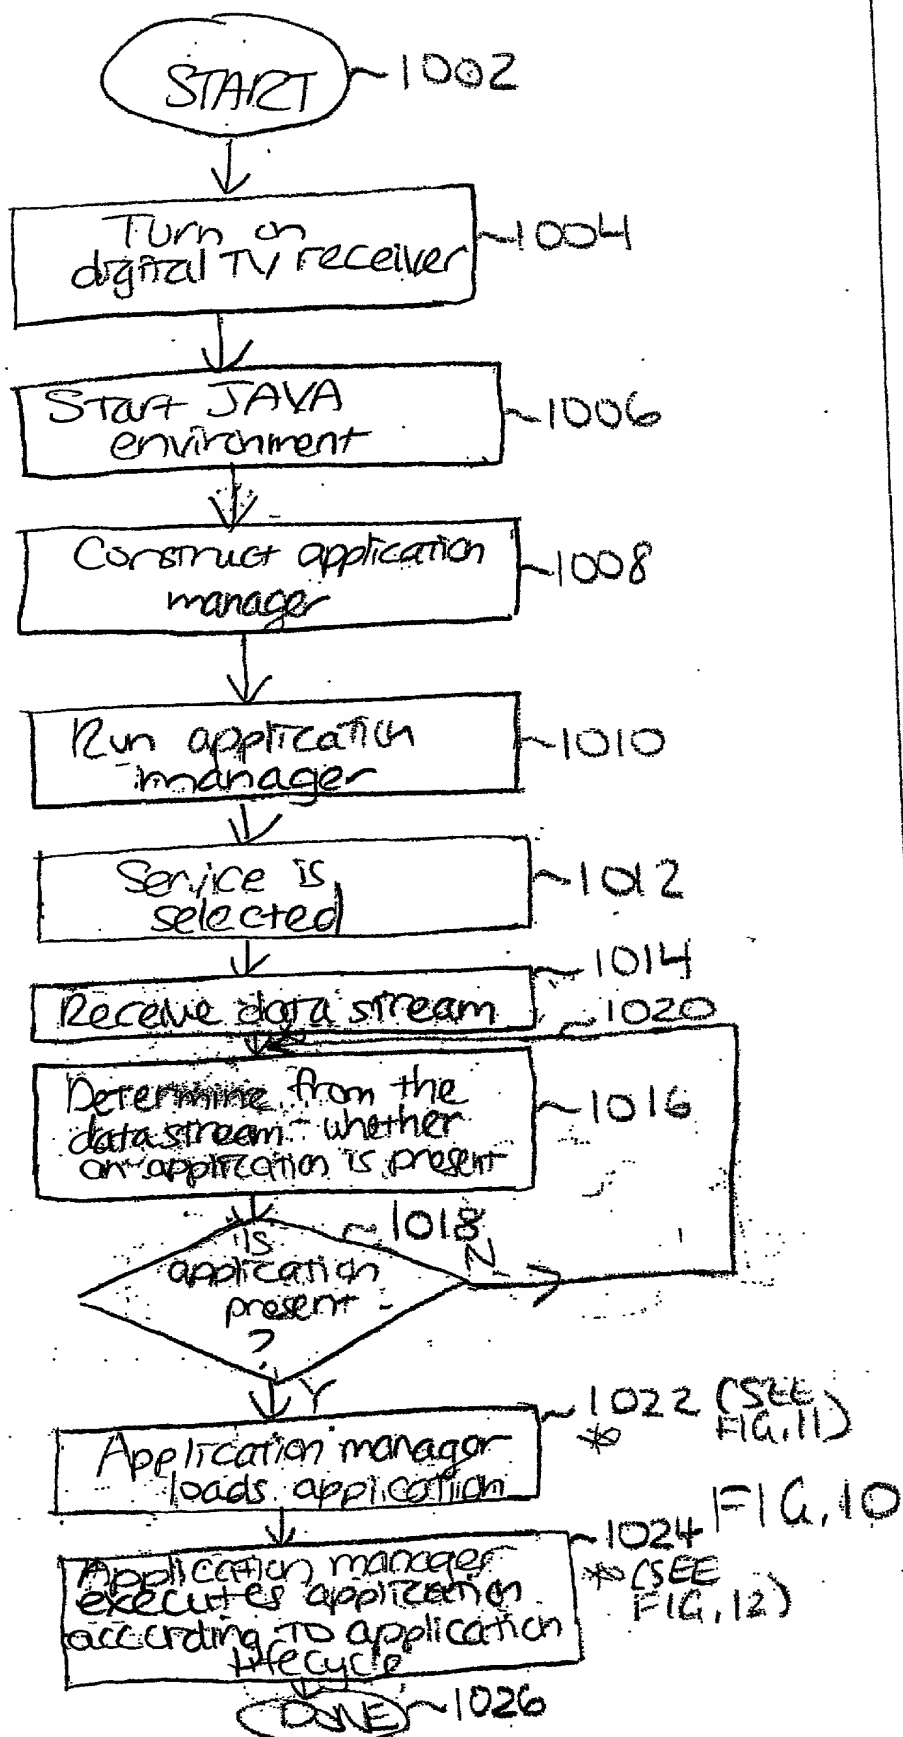 START ~1002
Turn on
digital TV receiver
~1004
Start JAVA
environment
~1006
Construct application
manager
~1008
Run application
manager
~1010
Service is
selected
~1012
~1014
Receive data stream
~1020
Determine from the
data stream whether
an application is present
~1016
~1018
Is
application
present
?
N
Y
~1022 (SEE
* FIG. 11)
Application manager
loads application
FIG. 10
~1024
* (SEE
FIG. 12)
Application manager
executes application
according to application
lifecycle
DONE ~1026